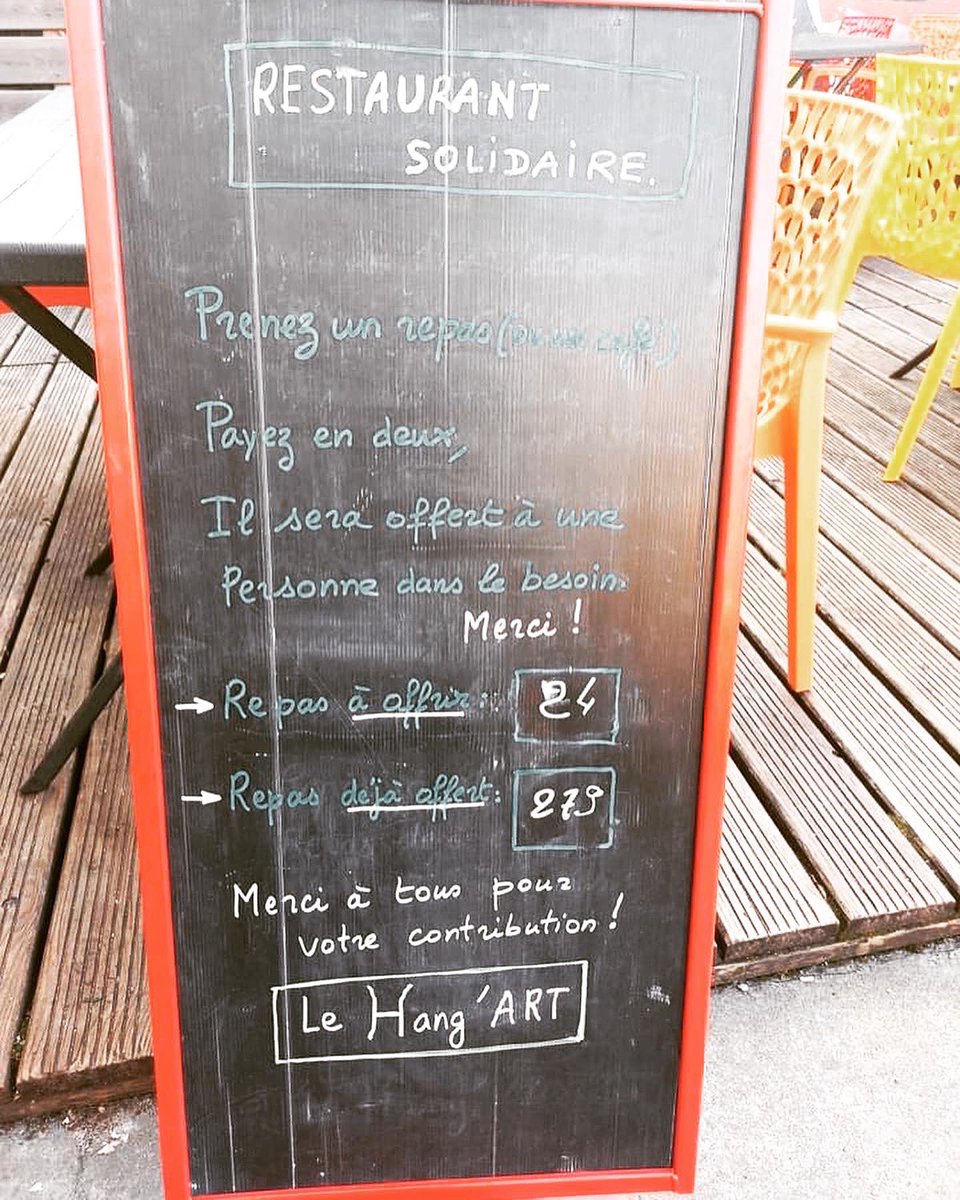 RESTAURANT
SOLiDAiRE.
Prenez un repas (ou un café)
Payez en deux,
Il sera offert à une
Personne dans le besoin.
Merci !
→ Repas à offrir : 24
→ Repas déjà offert : 279
Merci à tous pour
votre contribution !
Le Hang'ART